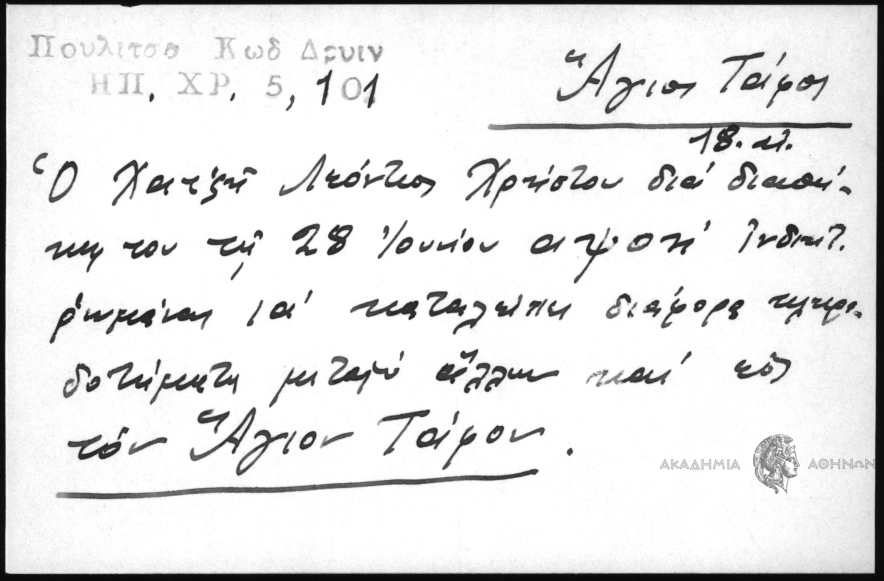 Πουλιτσα Κωδ Δρυιν
ΗΠ. ΧΡ. 5, 101
Ἅγιος Τάφος
18. αἰ.
Ὁ Χατζῆ Λεόντιος Χρήστου διά διαθή-
κης του τῇ 28 Ἰουνίου αψοη' Ἰνδικτ.
ια' καταλείπει διάφορα κληρο-
δοτήματα μεταξύ ἄλλων καί εἰς
τόν Ἅγιον Τάφον.
ΑΚΑΔΗΜΙΑ ΑΘΗΝΩΝ